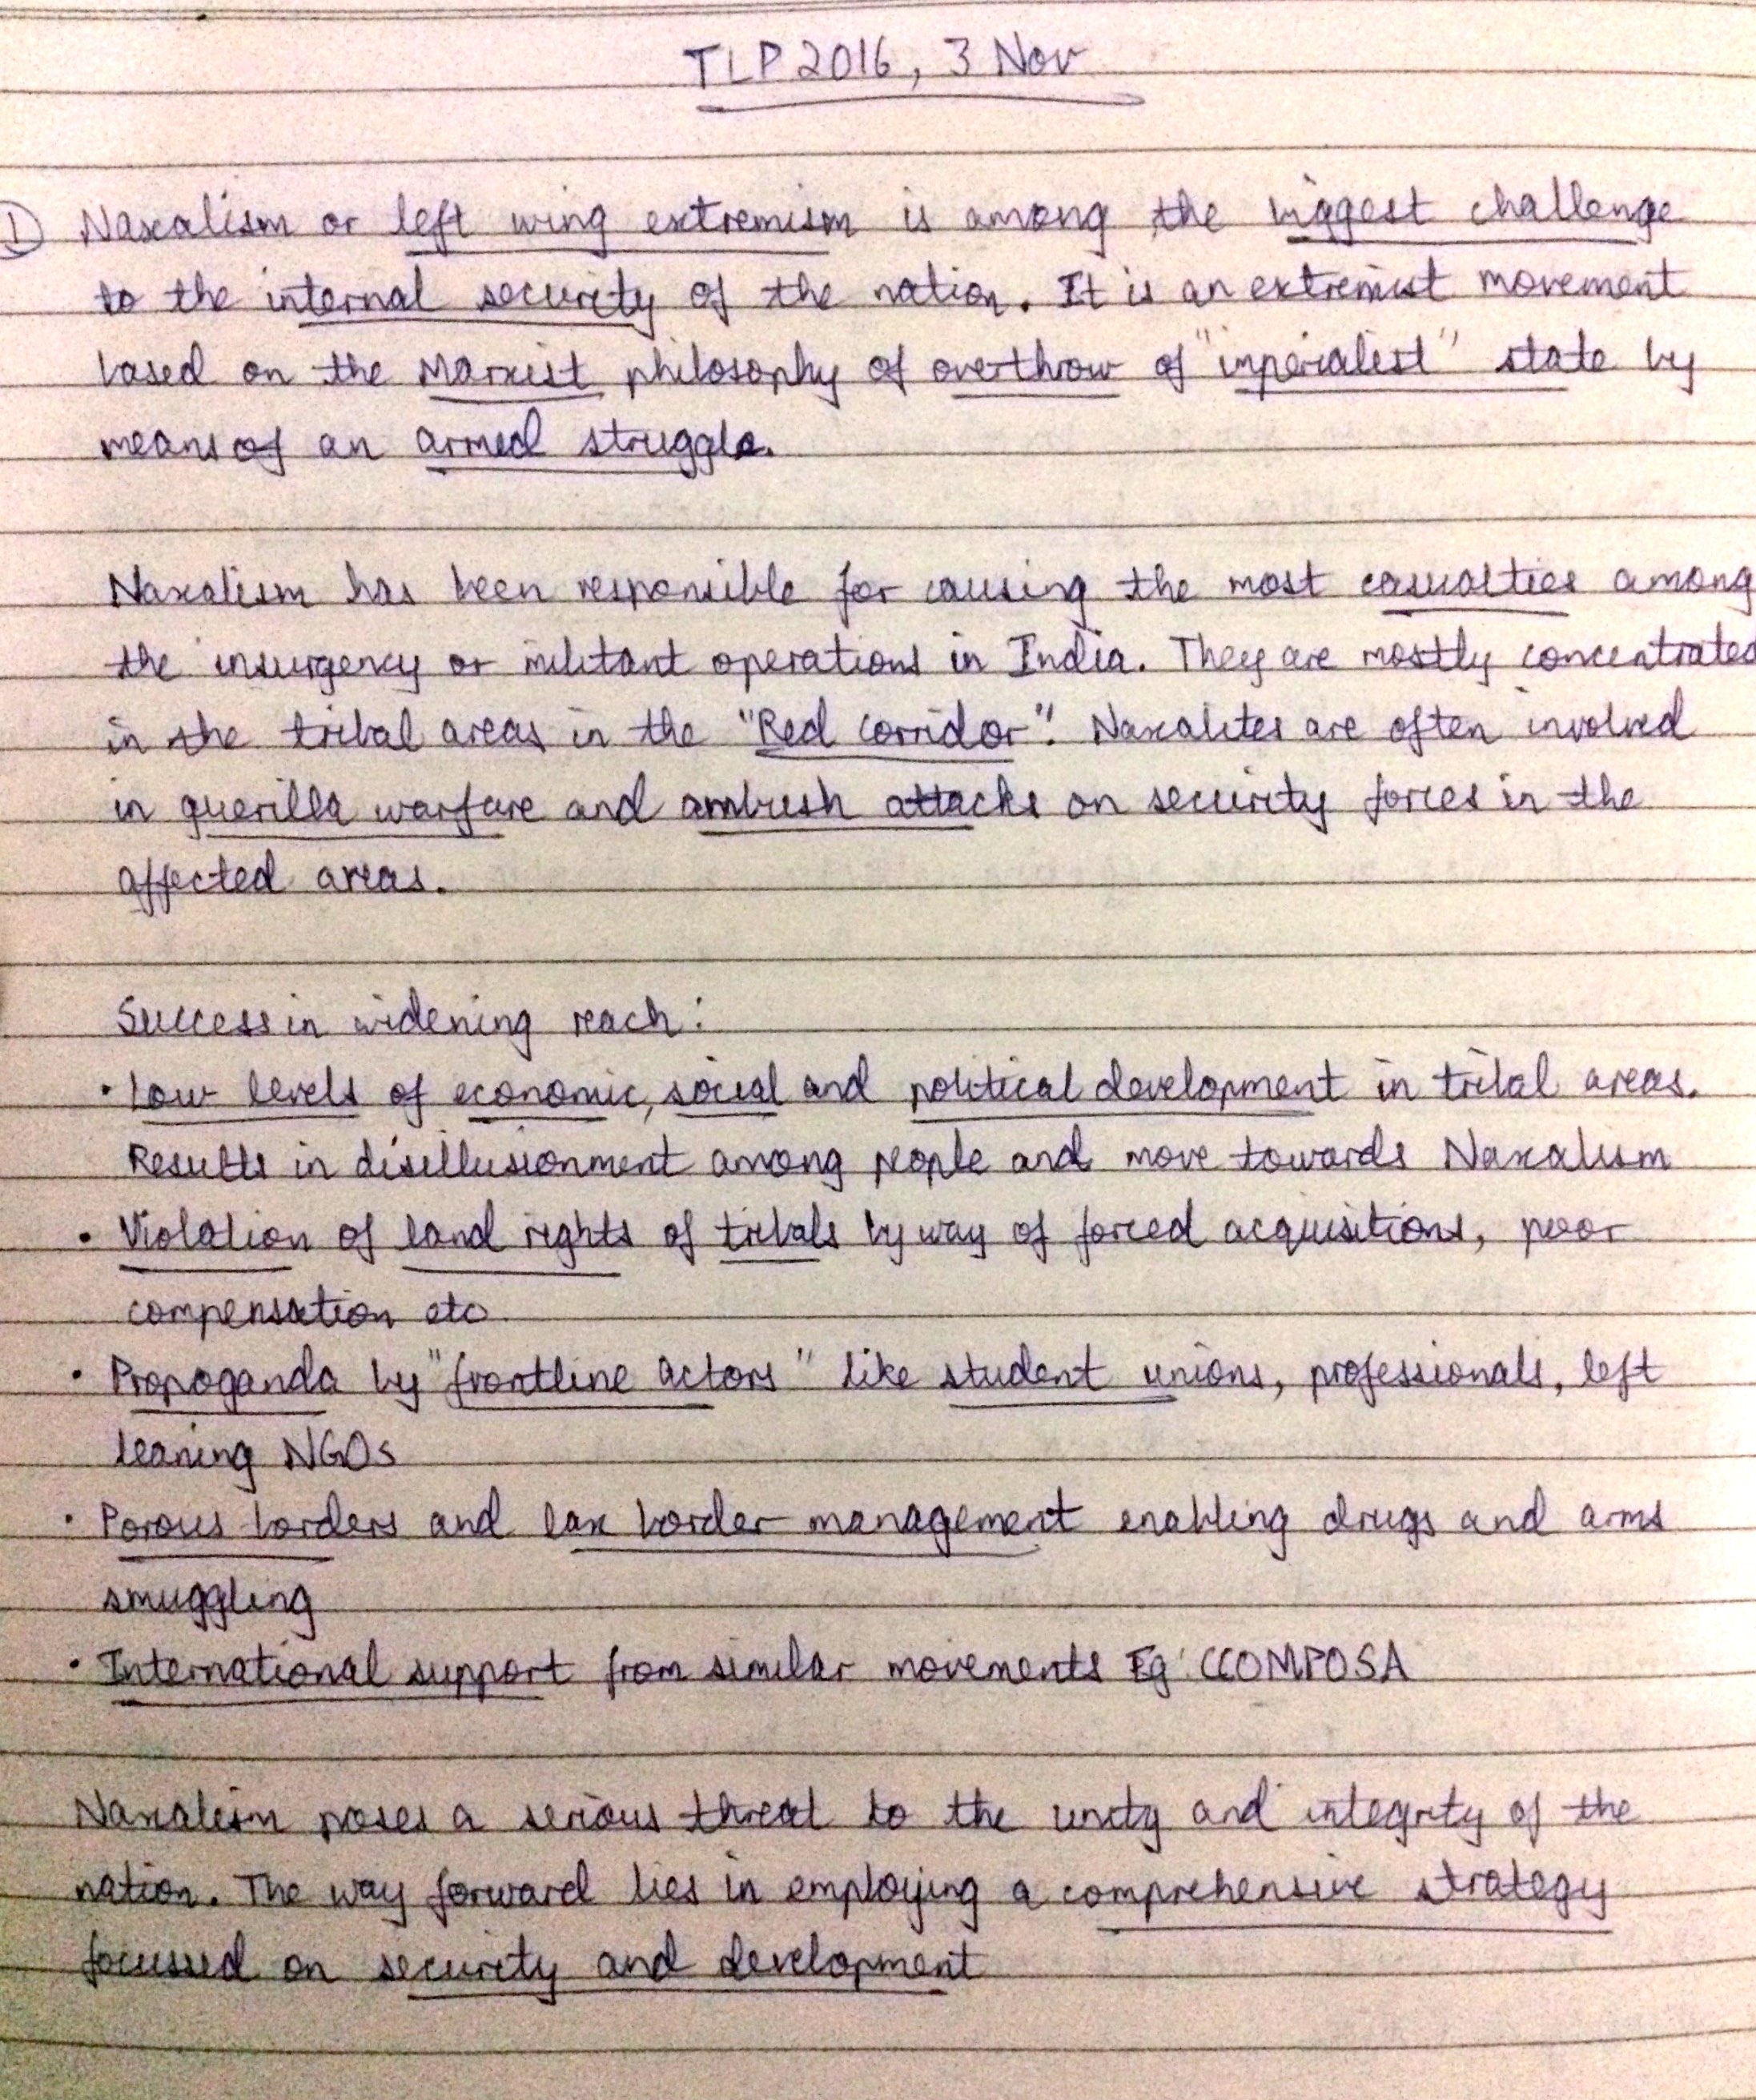 TLP 2016, 3 Nov
1 Naxalism or left wing extremism is among the biggest challenge
to the internal security of the nation. It is an extremist movement
based on the Marxist philosophy of overthrow of "imperialist" state by
means of an armed struggle.
Naxalism has been responsible for causing the most casualties among
the insurgency or militant operations in India. They are mostly concentrated
in the tribal areas in the "Red corridor". Naxalites are often involved
in guerilla warfare and ambush attacks on security forces in the
affected areas.
Success in widening reach:
• Low levels of economic, social and political development in tribal areas.
Results in disillusionment among people and move towards Naxalism
• Violation of land rights of tribals by way of forced acquisitions, poor
compensation etc
• Propoganda by "frontline actors" like student unions, professionals, left
leaning NGOs
• Porous borders and lax border management enabling drugs and arms
smuggling
• International support from similar movements Eg: CCOMPOSA
Naxalism poses a serious threat to the unity and integrity of the
nation. The way forward lies in employing a comprehensive strategy
focussed on security and development